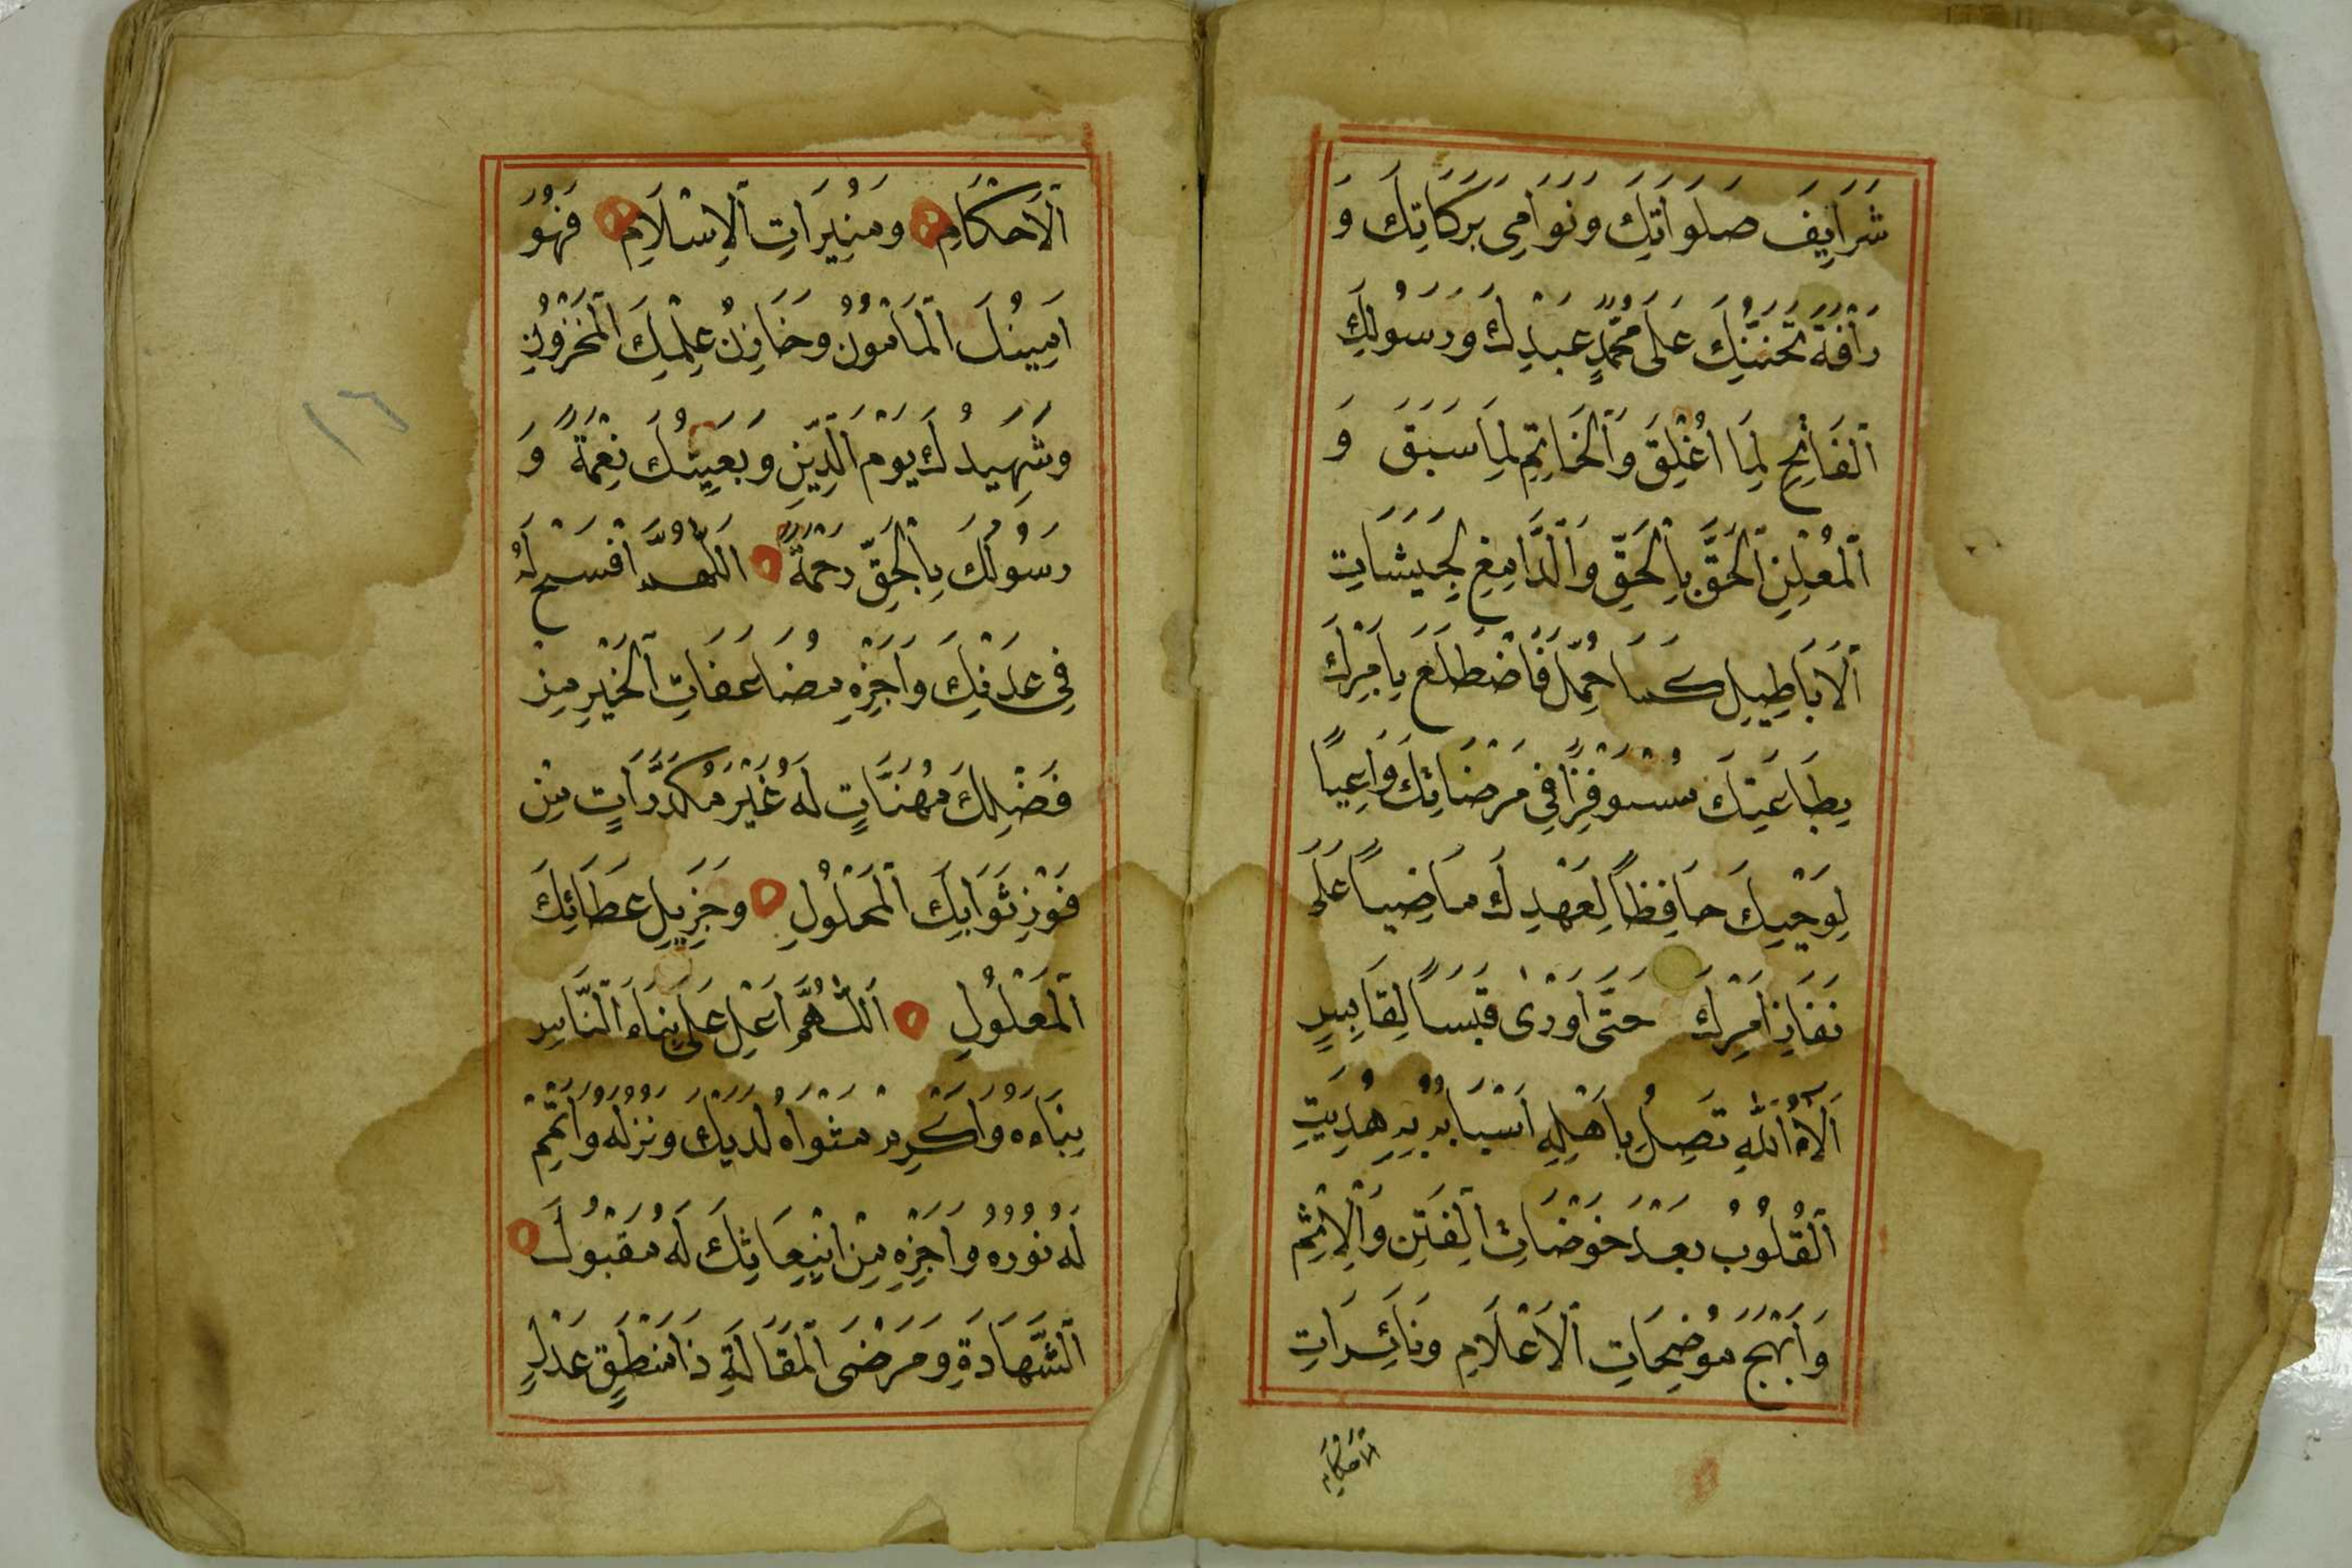 شَرَايِفَ صَلَوَاتِكَ وَنَوَامِيَ بَرَكَاتِكَ وَ
رَأْفَةَ تَحَنُّنِكَ عَلَى مُحَمَّدٍ عَبْدِكَ وَرَسُولِكَ
ٱلْفَاتِحِ لِمَا اُغْلِقَ وَٱلْخَاتِمِ لِمَا سَبَقَ وَ
ٱلْمُعْلِنِ ٱلْحَقَّ بِالْحَقِّ وَٱلدَّامِغِ لِجَيْشَاتِ
ٱلْاَبَاطِيلِ كَمَا حُمِّلَ فَاضْطَلَعَ بِاَمْرِكَ
بِطَاعَتِكَ مُسْتَوْفِزًا فِي مَرْضَاتِكَ وَاعِيًا
لِوَحْيِكَ حَافِظًا لِعَهْدِكَ مَاضِيًا عَلَى
نَفَاذِ اَمْرِكَ حَتَّى اَوْرٰى قَبَسًا لِقَابِسٍ
اٰلَاءُ ٱللّٰهِ تَصِلُ بِاَهْلِهِ اَسْبَابُهُ بِهِ هُدِيَتِ
ٱلْقُلُوبُ بَعْدَ خَوْضَاتِ الْفِتَنِ وَٱلْاِثْمِ
وَاَبْهَجَ مُوضِحَاتِ ٱلْاَعْلَامِ وَنَائِرَاتِ
الْاَحْكَامِ
ٱلْاَحْكَامِ وَمُنِيرَاتِ ٱلْاِسْلَامِ فَهُوَ
اَمِينُكَ ٱلْمَأْمُونُ وَخَازِنُ عِلْمِكَ الْمَخْزُونِ
وَشَهِيدُكَ يَوْمَ ٱلدِّينِ وَبَعِيثُكَ نِعْمَةً وَ
رَسُولُكَ بِالْحَقِّ رَحْمَةً اَللّٰهُمَّ افْسَحْ لَهُ
فِي عَدْنِكَ وَاَجْزِهِ مُضَاعَفَاتِ ٱلْخَيْرِ مِنْ
فَضْلِكَ مُهَنَّاتٍ لَهُ غَيْرَ مُكَدَّرَاتٍ مِنْ
فَوْزِ ثَوَابِكَ ٱلْمَحْلُولِ وَجَزِيلِ عَطَائِكَ
ٱلْمَعْلُولِ اَللّٰهُمَّ اَعْلِ عَلَى بِنَاءِ ٱلنَّاسِ
بِنَاءَهُ وَاَكْرِمْ مَثْوَاهُ لَدَيْكَ وَنُزُلَهُ وَاَتْمِمْ
لَهُ نُورَهُ وَاَجْزِهِ مِنْ اِنْبِعَاثِكَ لَهُ مَقْبُولَ
ٱلشَّهَادَةِ وَمَرْضَى ٱلْمَقَالَةِ ذَا مَنْطِقٍ عَدْلٍ
١٦